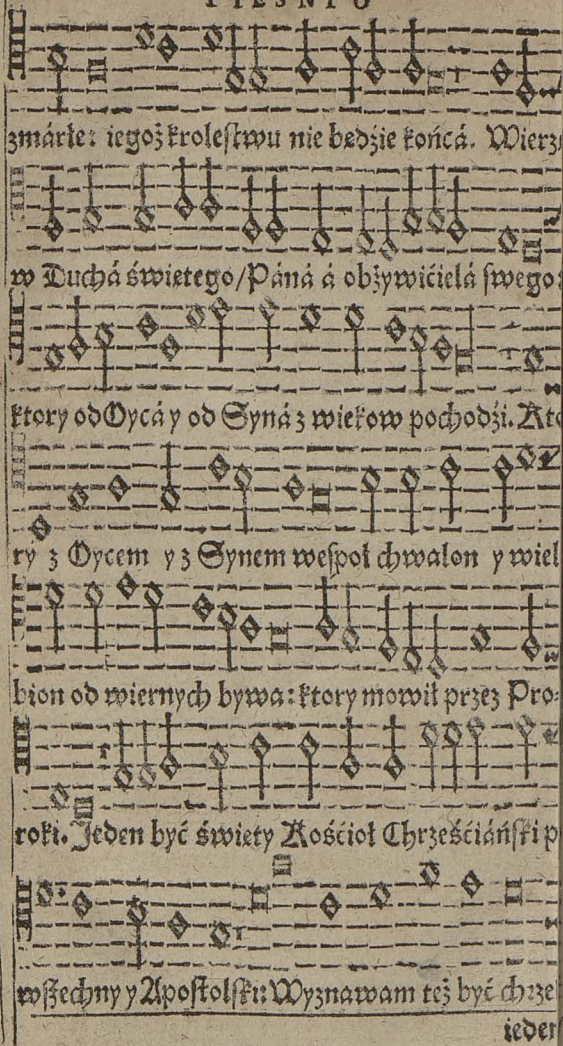 PIESNI O
zmárłe: iegoż krolestwu nie będzie końcá. Wierz
w Duchá świetego/Páná á obżywićielá swego:
ktory od Oycá y od Syná z wiekow pochodźi. Kto
ry z Oycem y z Synem wespoł chwalon y wiel
bion od wiernych bywa: ktory mowił przez Pro-
roki. Jeden być święty Kośćioł Chrześćiáński p
wszechny y Apostolski: Wyznawam też być chrze
ieden